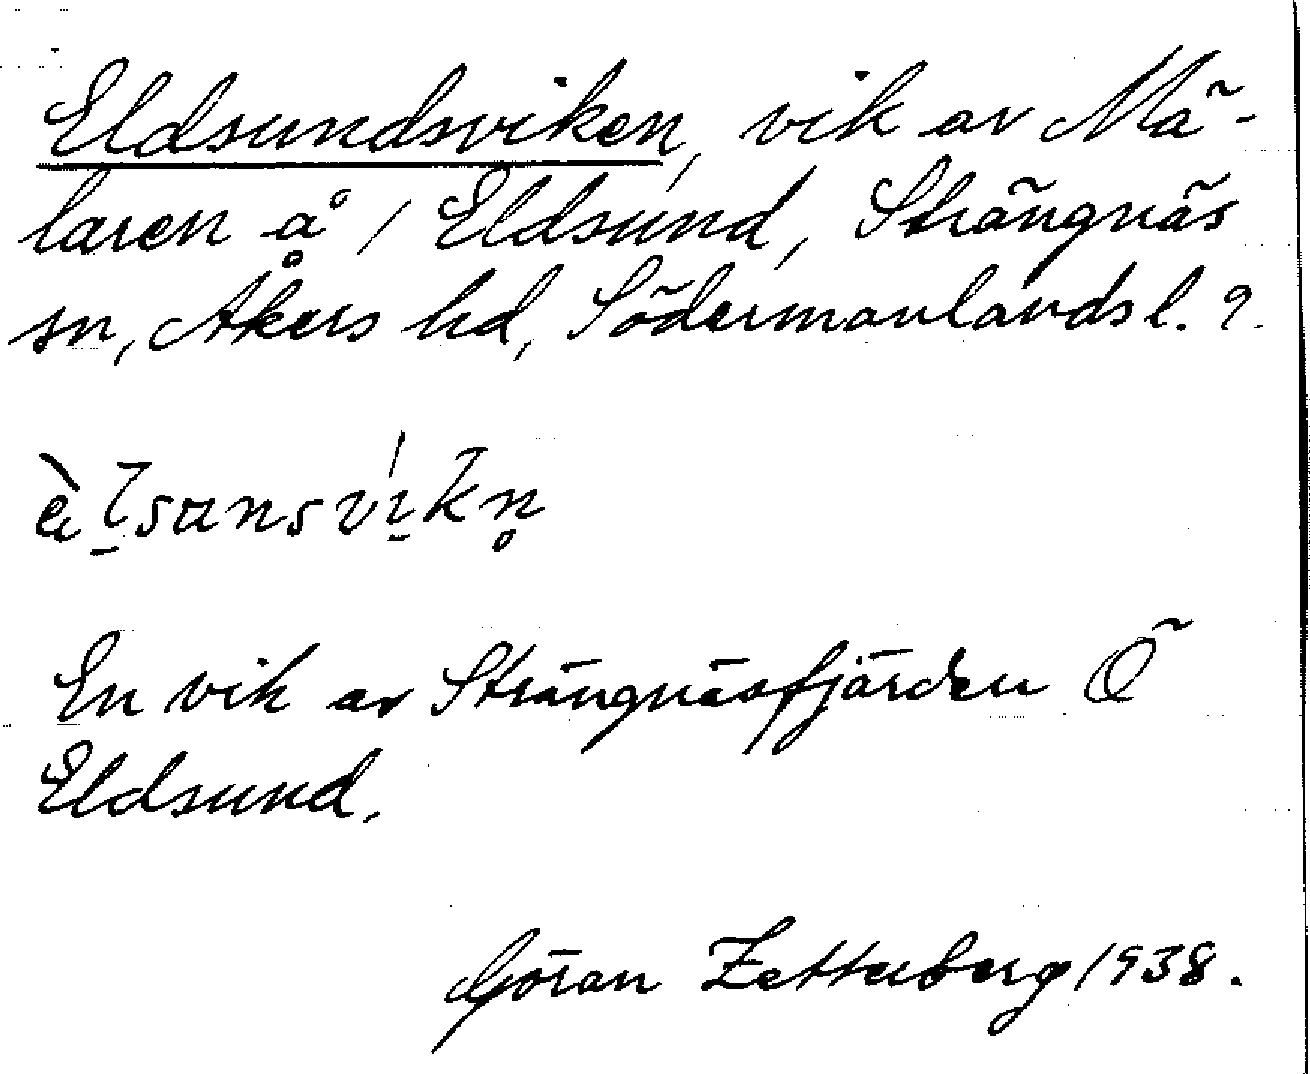 Eldsundsviken, vik av Mä-
laren å 1 Eldsund, Strängnäs
sn, Åkers hd, Södermanlands l. ?.
En vik av Strängnäsfjärden Ö
Eldsund.
Göran Zetterberg 1938.